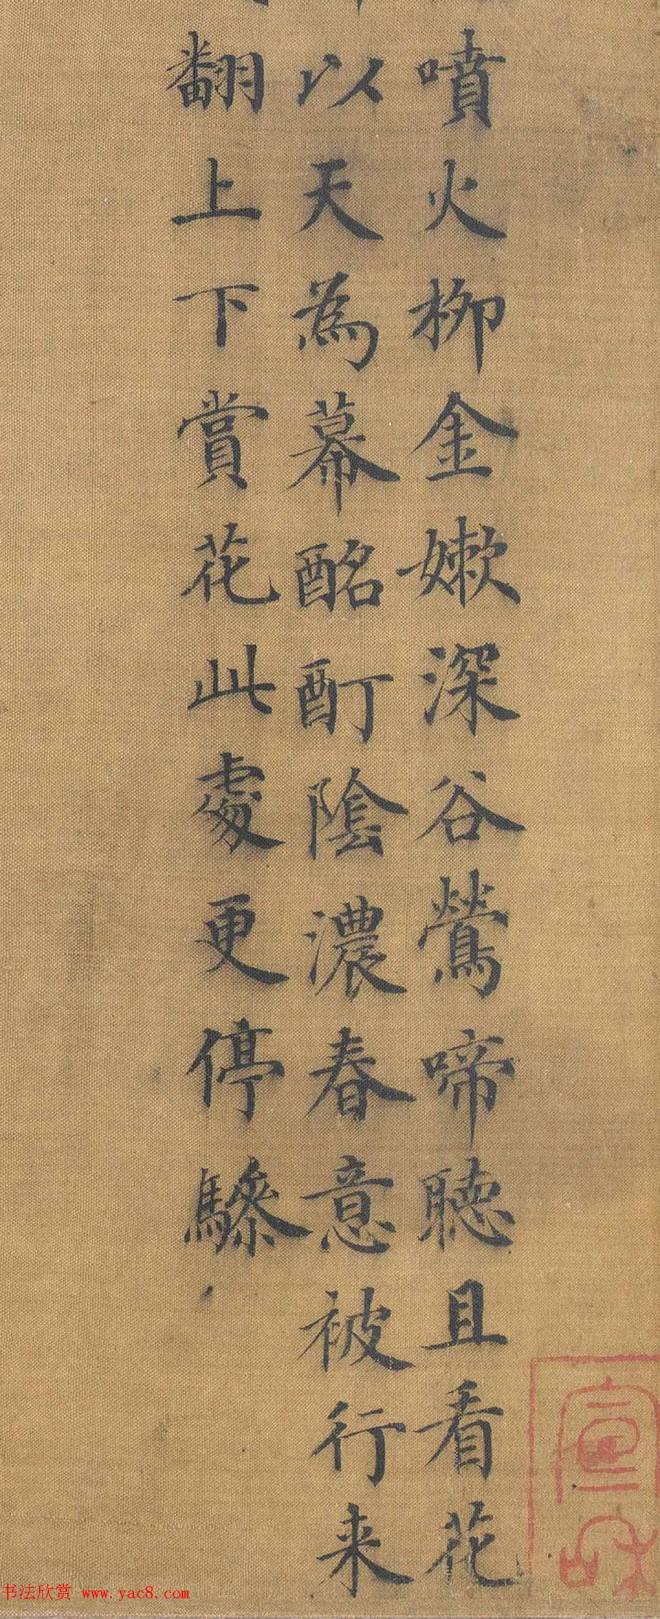 噴火柳金嫰深谷鶯啼聴且看花
以天為幕酩酊隂濃春意被行来
翻上下賞花此處更停驂
宣和
书法欣赏 www.yac8.com